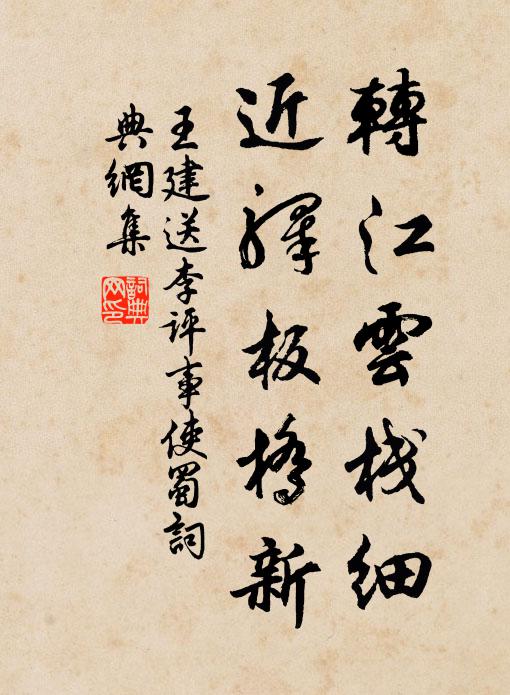 轉江雲棧細
近驛板橋新
王建送李評事使蜀詞
典網集
詞典
网印